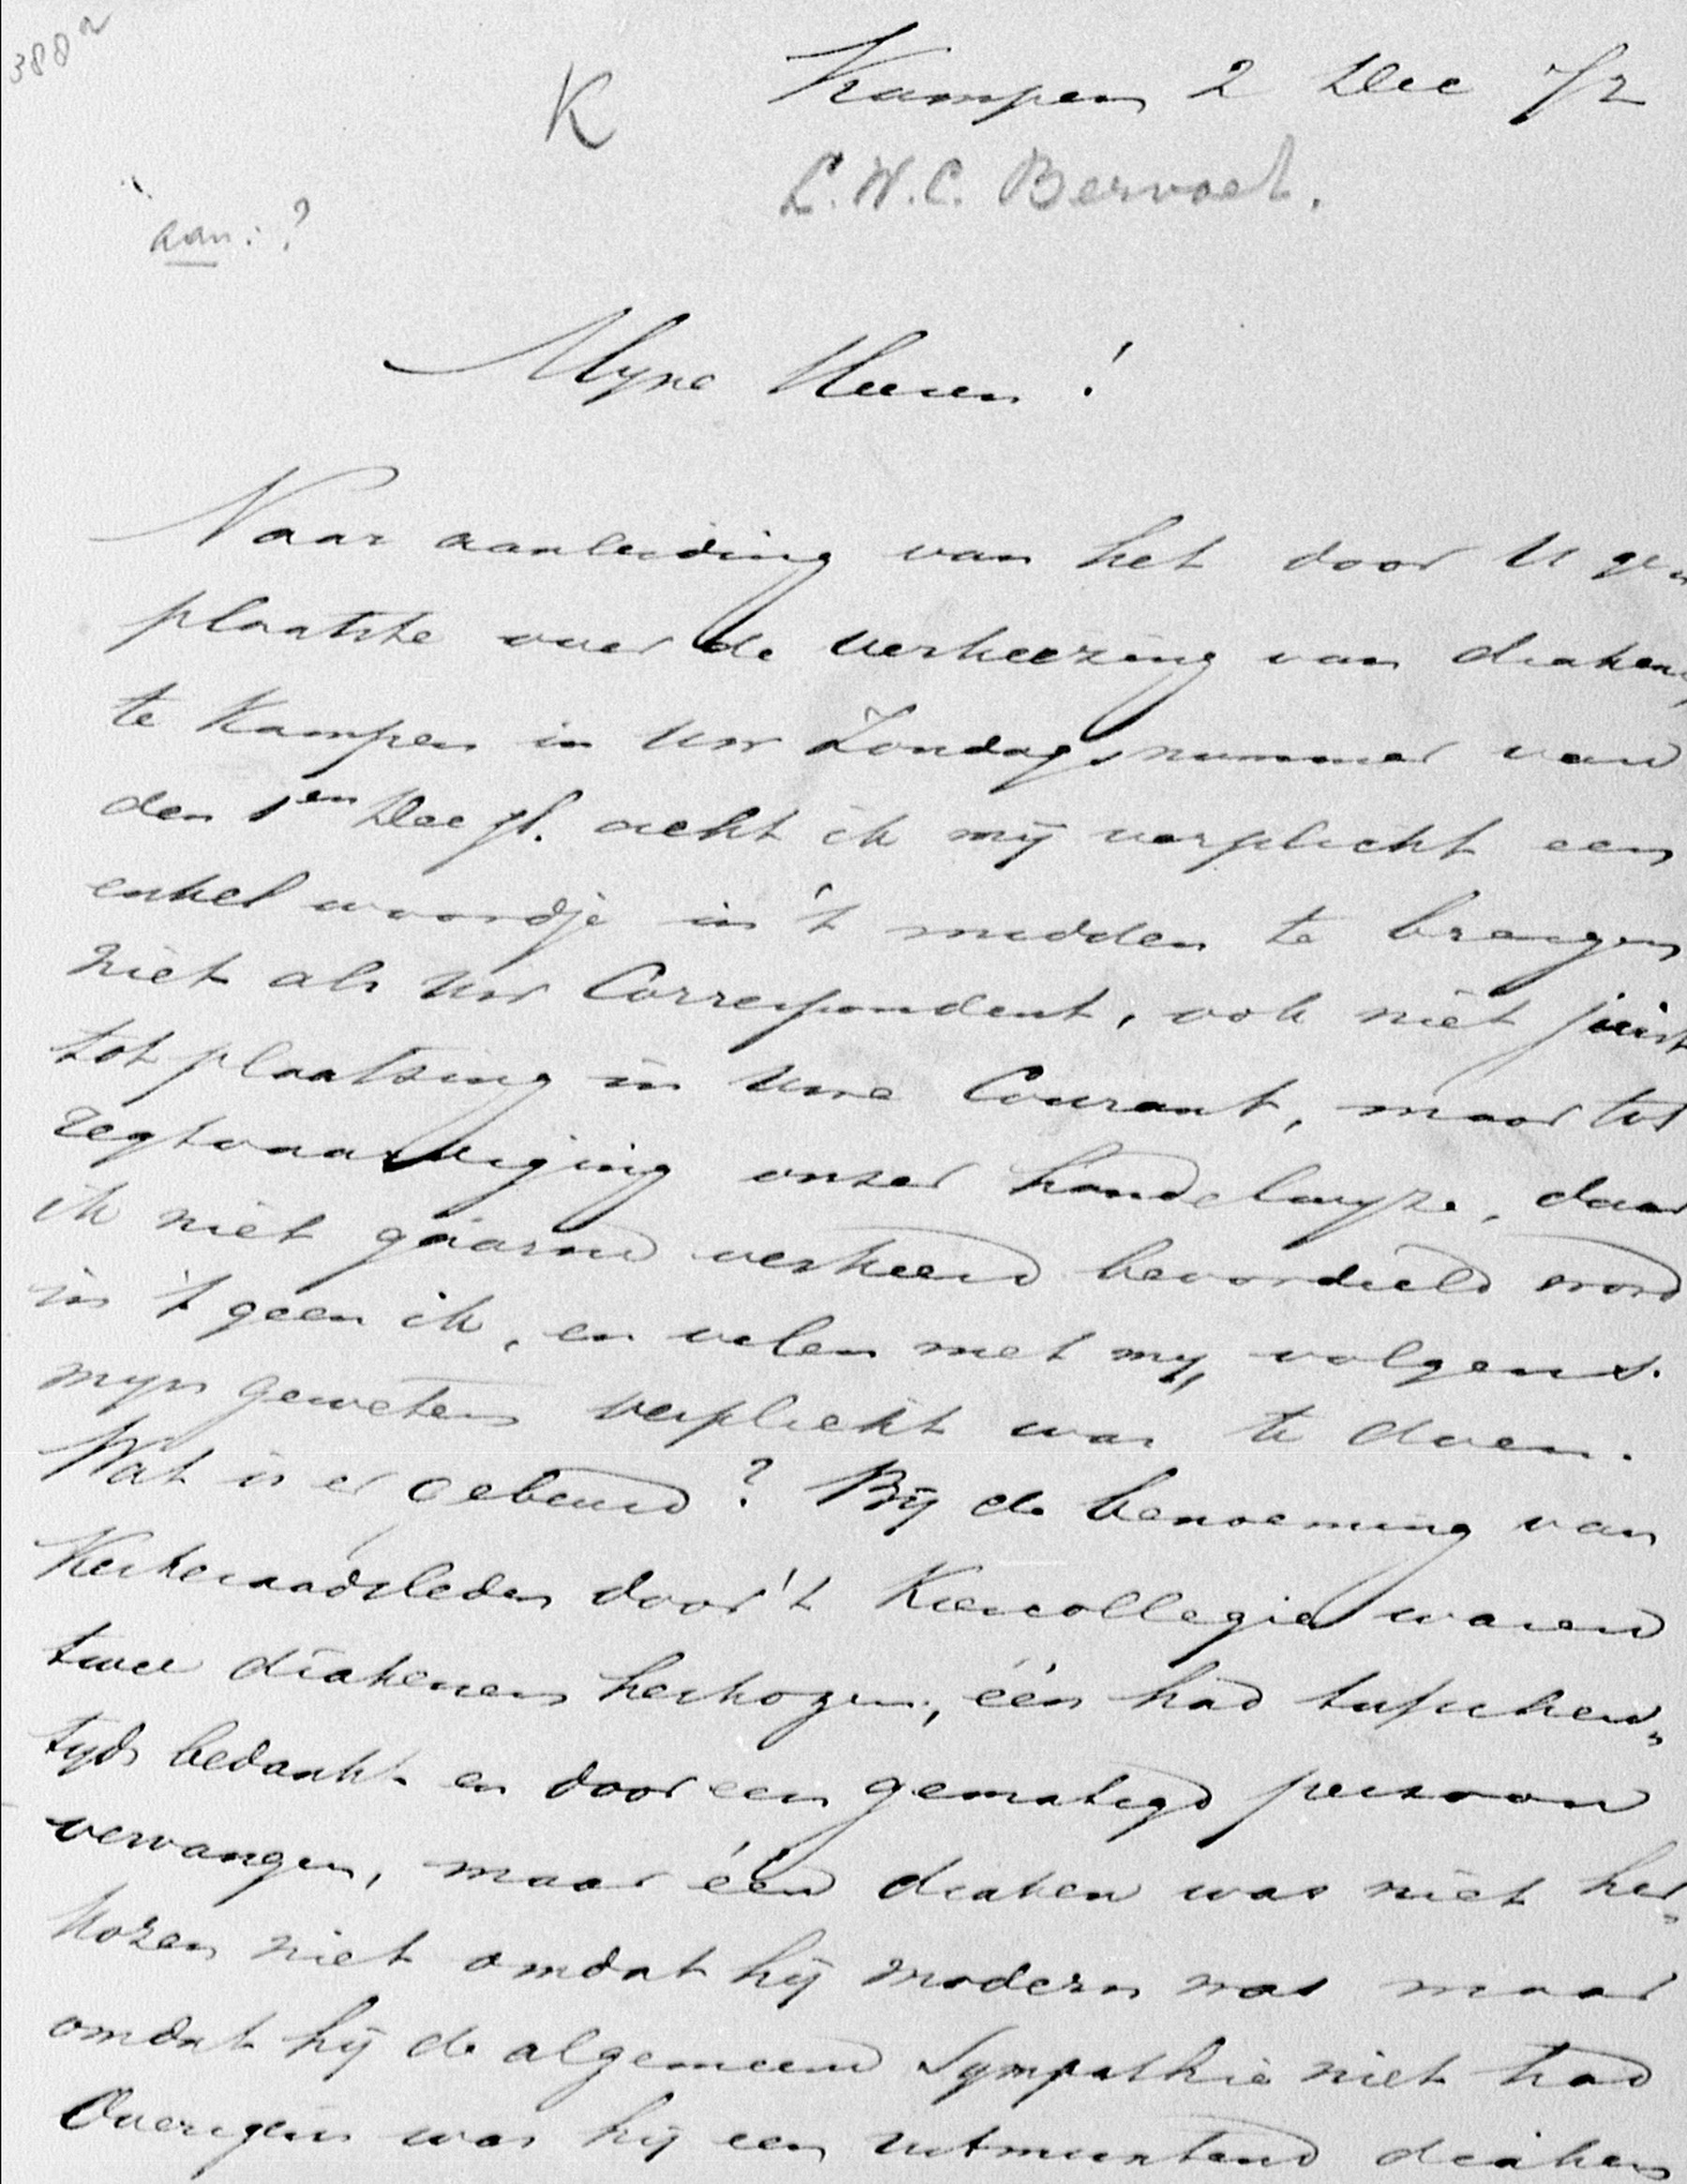 388a
K Kampen 2 Dec 72
L.W.C. Bervoet.
aan: ?
Myne Heeren!
Naar aanleiding van het door U ge„
plaatste over de verkiezing van diakenen
te Kampen in Uw Zondagsnummer van
den 1en Dec jl. acht ik mij verplicht een
enkel woordje in 't midden te brengen
niet als Uw Correspondent, ook niet juist
tot plaatsing in Uwe Courant, maar tot
regtvaardiging onzer handelwyze, daar
ik niet gaarne verkeerd beoordeeld word
in 't geen ik, en velen met my, volgens
myn geweten verplicht was te doen.
Wat is er gebeurd? Bij de benoeming van
Kerkeraadsleden door 't Kiescollegie waren
twee diakenen herkozen, één had tusschen„
tyds bedankt en door een gematigd persoon
vervangen, maar één diaken was niet her„
kozen niet omdat hij modern was maar
omdat hij de algemeene Sympathie niet had
Overigens was hij een uitmuntend diaken